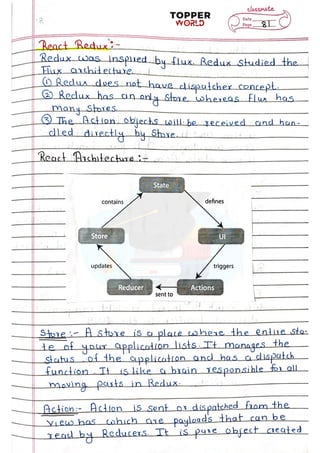 classmate
TOPPER
WORLD
Date
Page 81
React Redux :-
Redux was inspired by flux. Redux studied the
Flux architecture.
① Redux does not have disputcher concept.
② Redux has an only Store whereas Flux has
many Stores
③ The Action objects will be received and han-
dled directly by Store.
React Architecture :-
State
contains
defines
Store
UI
updates
triggers
Reducer
Actions
sent to
Store :- A store is a place where the entire sta-
te of your application lists. It manages the
status of the application and has a dispatch
function. It is like a brain responsible for all
moving parts in Redux.
Action:- Action is sent or dispatched from the
view has which are payloads that can be
read by Reducers. It is pure object created